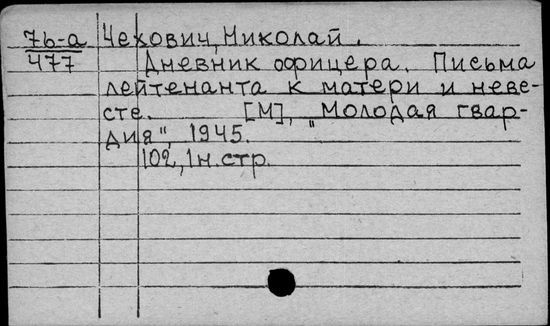 7б-а Чехович, Николай.
477 Дневник офицера. Письма
лейтенанта к матери и неве-
сте. [М], "Молодая гвар-
дия", 1945.
102, 1 н. стр.